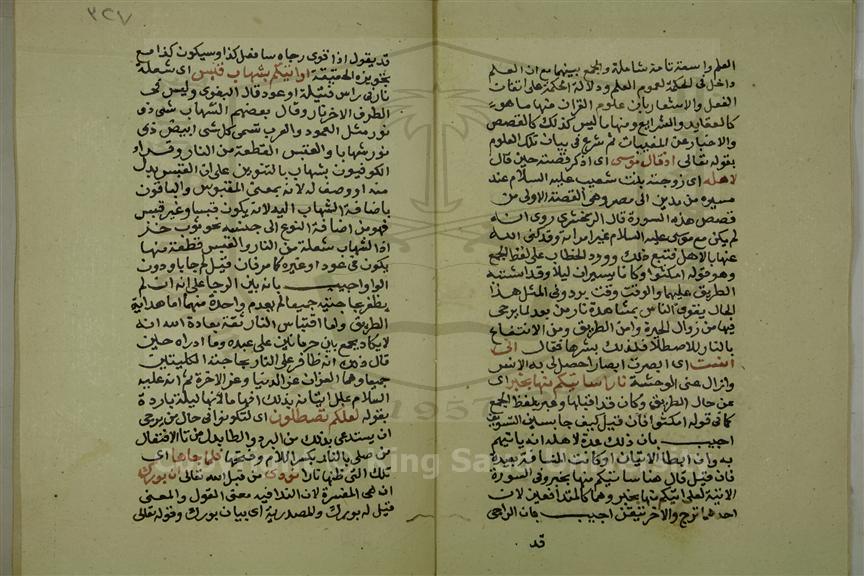 العلم واسعة تامة شاملة والجمع بينهما مع ان العلم
داخل في الحكمة لعموم العلم ودلالة الحكمة على اتقان
الفعل والاشعار بان علوم القران منها ما هو
كالعقايد والشرايع ومنها ما ليس كذلك كالقصص
والاخبار عن المغيبات ثم شرع في بيان تلك العلوم
بقوله تعالى اذ قال موسى اي اذكر قصته حين قال
لاهله اي زوجته بنت شعيب عليه السلام عند
مسيره من مدين الى مصر وهي القصة الاولى من
قصص هذه السورة قال الزمخشري روي انه
لم يكن مع موسى عليه السلام غير امراته وقد كنى الله
عنها بالاهل فتبع ذلك ورود الخطاب على لفظ الجمع
وهو قوله امكثوا وكانا يسيران ليلا وقد اشتبه
الطريق عليهما والوقت وقت برد وفي المثل هذا
الحال يقوى الناس بمشاهدة نار من بعد لما يرجى
فيها من زوال الحيرة وامن الطريق ومن الانتفاع
بالنار للاصطلا فلذلك بشرها فقال اني
انست اي ابصرت ابصارا حصل لي به الانس
وازال عني الوحشة نارا ساتيكم منها بخبر اي
عن حال الطريق وكان قد اضلها وعبر بلفظ الجمع
كما في قوله امكثوا فان قيل كيف جا بسين التسويف
اجيب بان ذلك عدة لاهله انه ياتيهم
به وان ابطا الاتيان او كانت المسافة بعيدة
فان قيل قال هنا ساتيكم منها بخبر وفي السورة
الاتية لعلي اتيكم منها بخبر وهما كالمتدافعين لان
احدهما ترج والاخر تيقن اجيب بان الراجي
قد
٣٢٧
قد يقول اذا قوي رجاه سافعل كذا وسيكون كذا مع
تجويزه الخيبة او اتيكم بشهاب قبس اي شعلة
نار في راس فتيلة او عود قال البغوي وليس في
الطرف الاخر نار وقال بعضهم الشهاب شي ذو
نور مثل العمود والعرب تسمي كل شي ابيض ذي
نور شهابا والقبس القطعة من النار وقراه
الكوفيون بشهاب بالتنوين على ان القبس بدل
منه او وصف له لانه بمعنى المقبوس والباقون
باضافة الشهاب اليه لانه يكون قبسا وغير قبس
فهو من اضافة النوع الى جنسه نحو ثوب خز
اذ الشهاب شعلة من النار والقبس قطعة منها
يكون في عود او غيره كما مر فان قيل لم جا باو دون
الواو اجيب بانه بنى الرجا على انه ان لم
يظفر بحاجتيه جميعا لم يعدم واحدة منهما اما هداية
الطريق واما اقتباس النار ثقة بعادة الله انه
لا يكاد يجمع بين حرمانين على عبده وما ادراه حين
قال ذلك انه ظافر على النار بحاجتيه الكليتين
جميعا وهما العزان عز الدنيا وعز الاخرة ثم انه عليه
السلام علل اتيانه بذلك افهاما لانها ليلة باردة
بقوله لعلكم تصطلون اي لتكونوا في حال من يرجى
ان يستدفي بذلك من البرد والطا بدل من تا الافتعال
من صلي بالنار بكسر اللام وفتحها فلما جاها اي
تلك التي ظنها نارا نودي من قبل الله تعالى ان بورك
ان هي المفسرة لان الندا فيه معنى القول والمعنى
قيل له بورك والمصدرية اي بان بورك وقوله تعالى